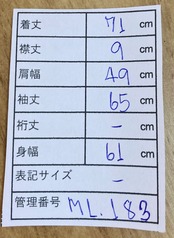 着丈 71 cm
襟丈 9 cm
肩幅 49 cm
袖丈 65 cm
裄丈 − cm
身幅 61 cm
表記サイズ −
管理番号 ML.183